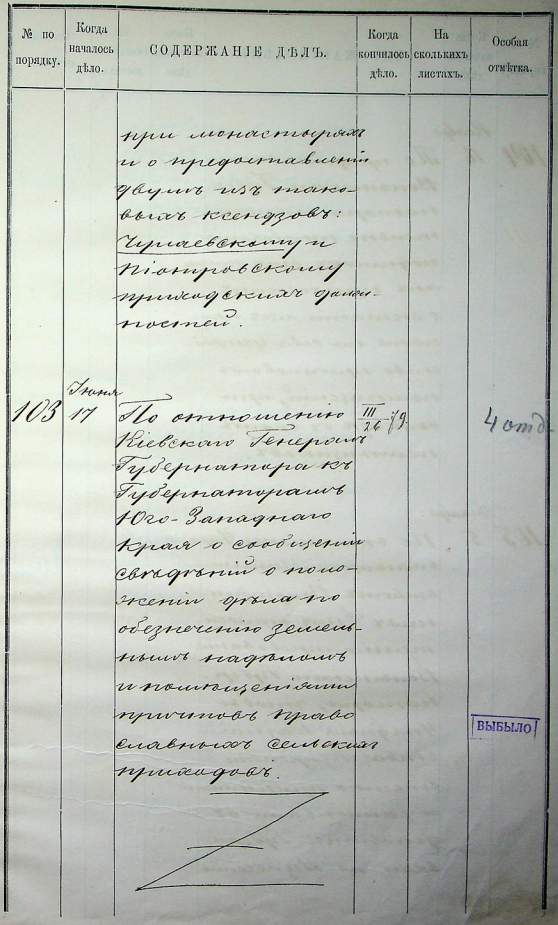 № по порядку.
Когда началось дѣло.
СОДЕРЖАНІЕ ДѢЛЪ.
Когда кончилось дѣло.
На сколькихъ листахъ.
Особая отмѣтка.
при монастыряхъ
и о предоставленіи
двумъ изъ тако-
выхъ ксендзовъ:
и
Піотровскому
приходскихъ долж-
ностей.
Іюня
103 17 По отношенію III/26 79. 4 отд.
Кіевскаго Генералъ
Губернатора къ
Губернаторамъ
Юго-Западнаго
края о сообщеніи
свѣдѣній о поло-
женіи дѣла по
обезпеченію земель-
нымъ надѣломъ
и помѣщеніями
причтовъ право
славныхъ сельскихъ
приходовъ.
ВЫБЫЛО